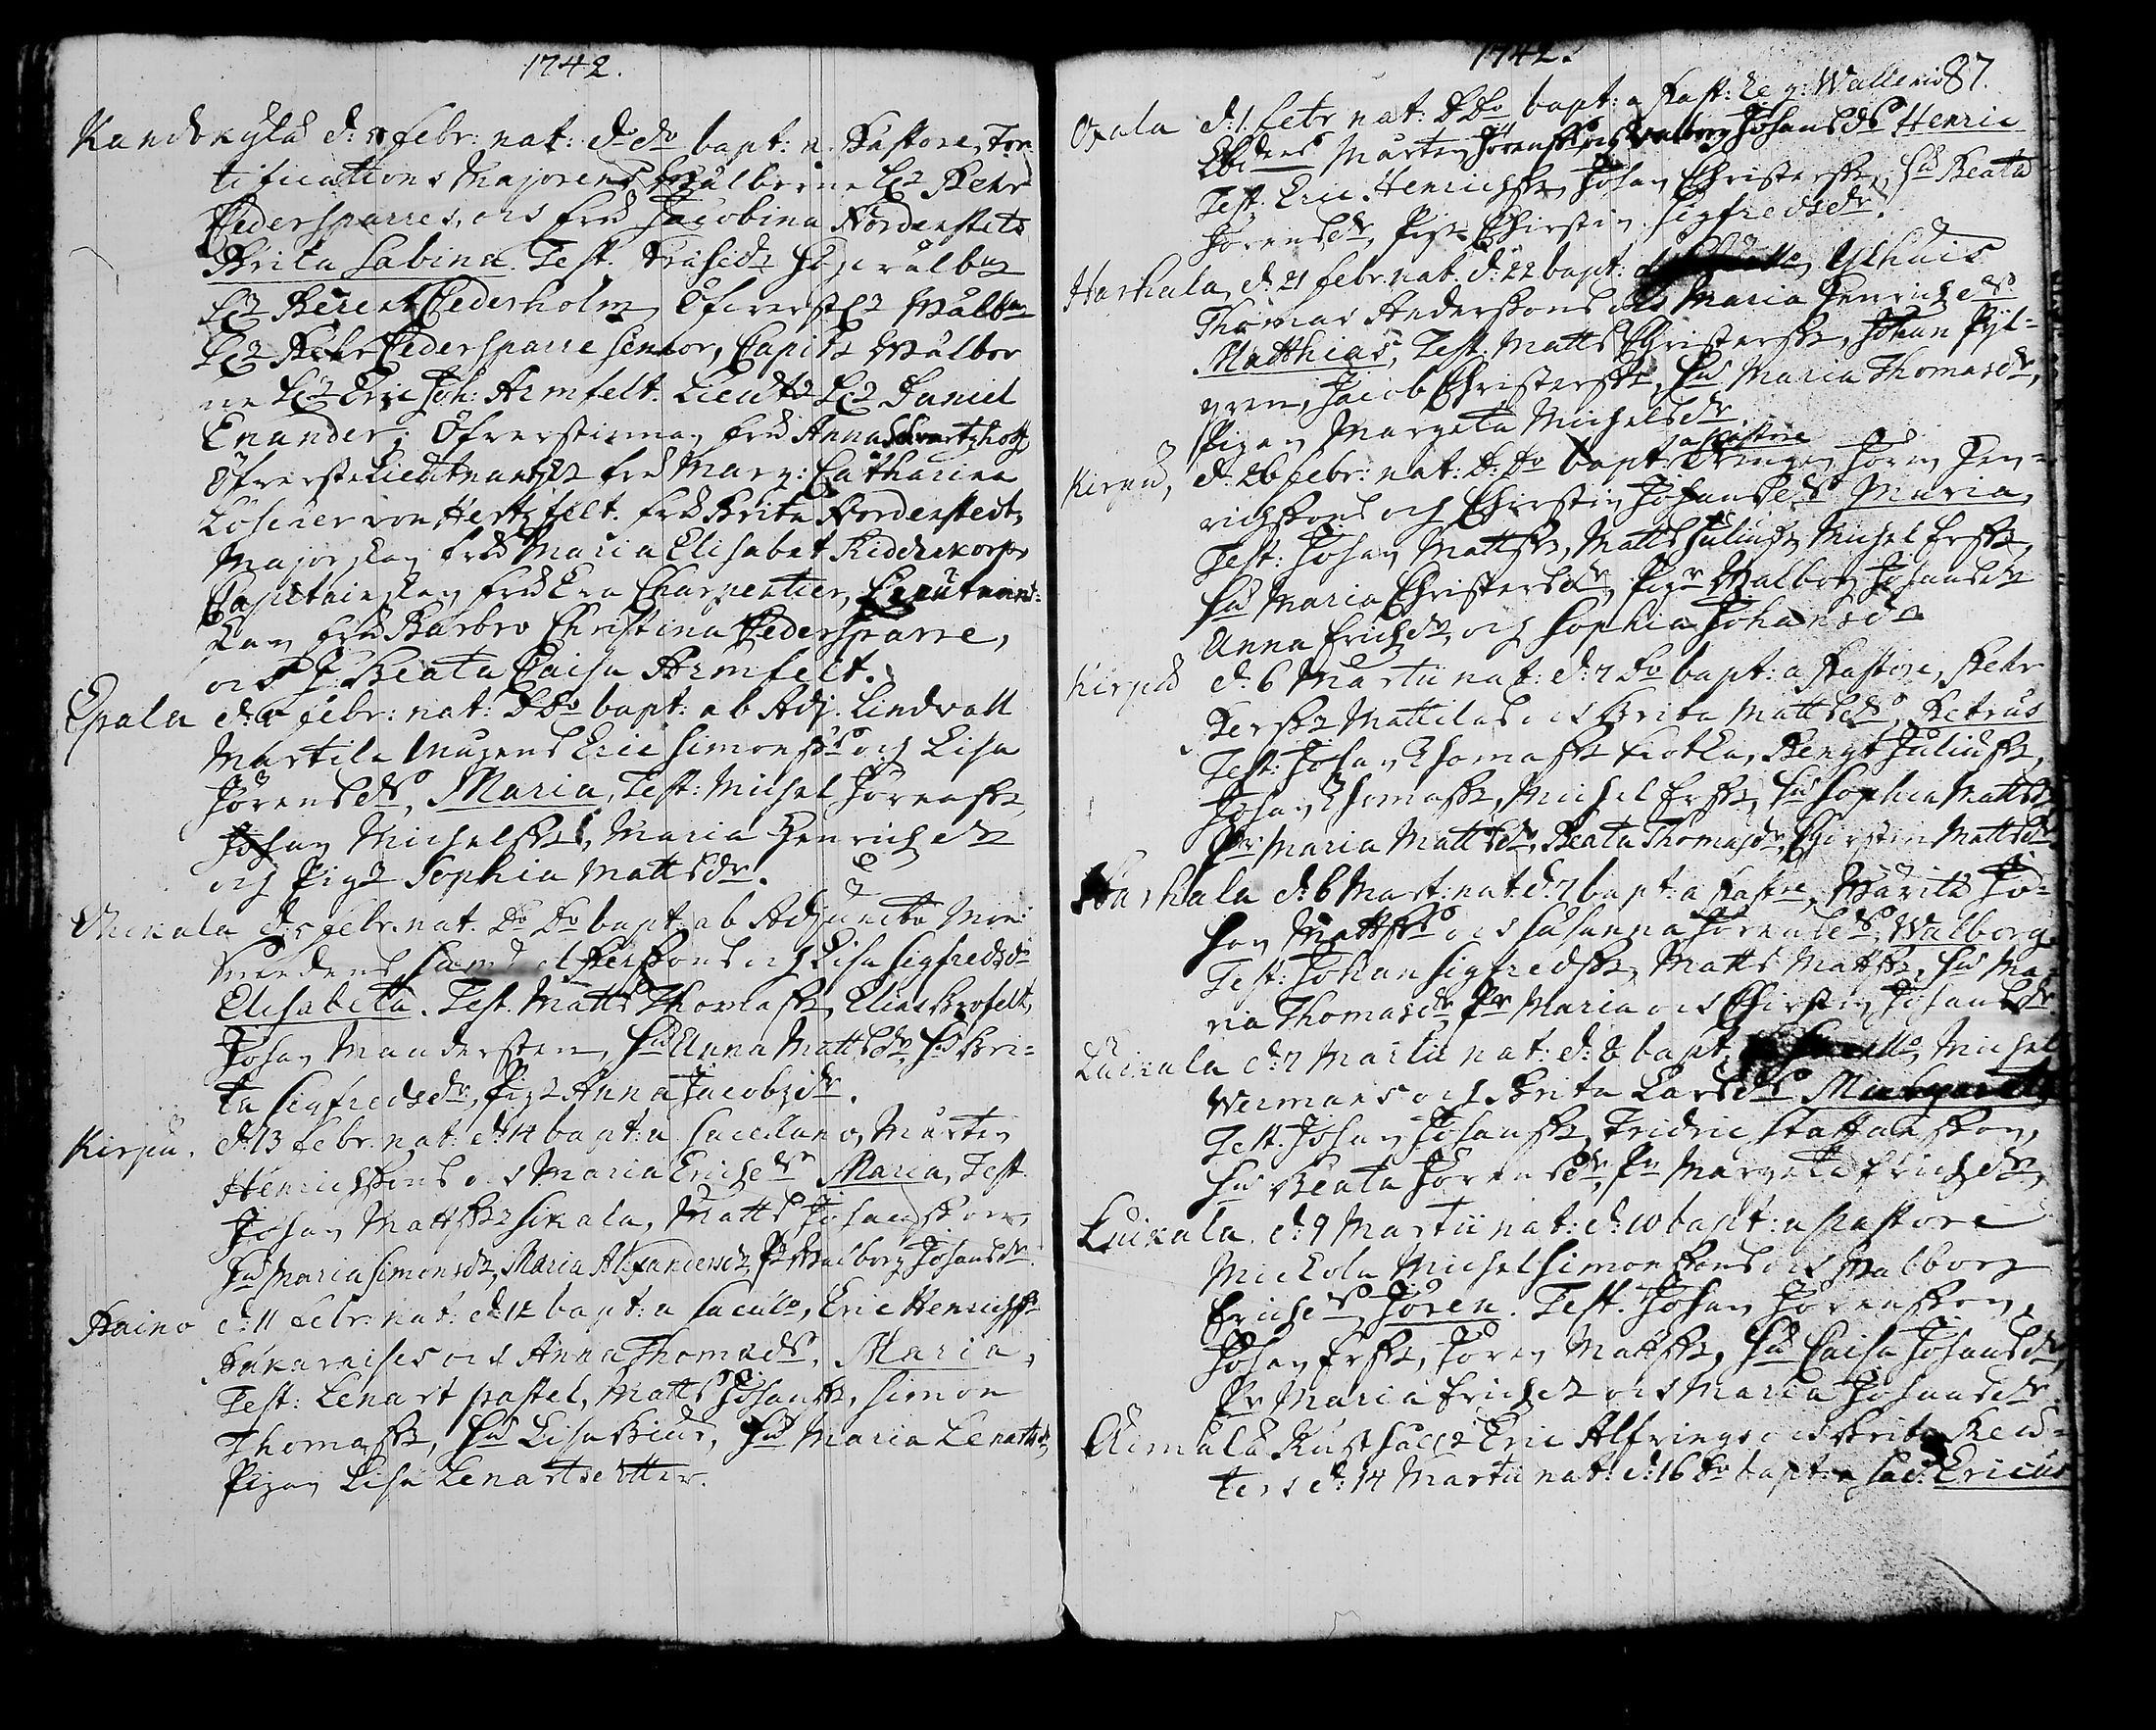 1742.
Kandkylä d: 5 febr: nat: d: do bapt: a Pastore, For
tifications Majorens Wälborne H:r Pehr
Cedersparres, och fru Jacobina Nordenstets
Brita Sabina. Test. H:r
H:r Berent Cederholm, Öfverst H:r Wälb:ne
H:r Pehr Cedersparre senior, Capit: Wälbor
ne H:r Eric Joh: Armfelt. Lieut: H:r Daniel
Enander; Öfverstinnan fru Anna Svartzhoff,
Öfverste Lieutnants fru Marg: Catharina
Löscher von Hertzfelt. fru Brita Nordenstedt,
Majorskan fru Maria Elisabet Ridderkorp,
Capitainskan fru Eva Charpentier, Lieutnants=
kan fru Barbro Christina Cedersparre,
och J: Beata Caisa Armfelt.
Epala d: 5 febr: nat: D Do bapt: ab Adj: Lindvall
Martila Eric Simonss och Lisa
Jörensdr, Maria, Test: Michel Jörenss,
Johan Michelss, Maria Henrichsdr
och Pig: Sophia Mattsdr.
d: 5 febr. nat. Do Do bapt: ab Adjuncto Mon:
Smedens Samuel Perssons och Lisa Sigfredsdr
Elisabeta. Test. Matts Thomass, Elias Brofelt,
Johan Manderstén, Hu Anna Mattsdr, Hu Bri=
ta Sigfredsdr, Pig: Anna Jacobsdr.
Kirjen. d: 13 febr. nat: d: 14 bapt: a Sacellano, Mårten
Henrichssons och Maria Erichsdr Maria, Test.
Johan Mattss Sikala, Matts Johansson,
Hu Maria Simonsdr, Maria Alexandersdr, P: Walborg Johansdr.
Paino d: 11 febr. nat: d: 12 bapt: a Sacello, Eric Henrichss
och Anna Thomasdr, Maria,
Test: Lenart Pastel, Matts Johanss, Simon
Thomass, Hu Lisa, Hu Maria Lenartsdr,
Pigan Lisa Lenartsdotter.
1742.
87.
Oxala d: 1 febr nat: D Do bapt: a Past: Wallenio
Mårten Jörenss och Walborg Johansdr Henric
Test. Eric Henrichss, Johan Christerss, Hu Beata
Jörensdr, Pig: Christin Sigfredsdr.
Harhala, d: 21 febr. nat. d: 22 bapt: Ylhäis
Thomas Anderssons och Maria Henrichsdr
Matthias, Test. Matts Christerss, Johan Pyl=
gren, Jacob Christerss, Hu Maria Thomasdr,
Pigan Margeta Michelsdr.
a Pastore
d: 26 febr: nat: D: Do bapt: Jören Hen=
richssons och Christin Johansdr Maria,
Test: Johan Mattss, Matts Juliuss, Michel Erss,
Hu Maria Christersdr, Pigr Walborg Johansdr
Anna Erichsdr, och Sophia Johansdr
d: 6 Martii nat: d: 7 Do bapt: a Pastore, Pehr
Perss Mattilas och Brita Mattsdr, Petrus
Test: Johan Thomass, Bengt Juliuss,
Johan Thomass, Michel Erss, Hu Sophia Mattsdr
Pr Maria Mattsdr, Beata Thomasdr, Christin Mattsdr
Harhala d: 6 Mart: nat d: 7 bapt: a Pastore, Jo=
han Mattss och Susanna Jörensdr, Walborg
Test: Johan Sigfredss, Matts Mattss, Hu Ma=
ria Thomasdr, Pr Maria och Christin Johansdr
Luikala d: 7 Martii nat: d: 8 bapt: Michel
Wermans och Brita Larsdr Margareta
Test. Johan Johanss, Fridric Staffansson,
Hu Beata Jörensdr, Pr Margeta Erichsdr,
Luikala. d: 9 Martii nat: d: 10 bapt: a Pastore
Mickola Michel Simonssons och Walborg
Erichsdr, Jören. Test. Johan Jörensson,
Johan Erss, Jören Mattss, Hu Caisa Johansdr,
Pr Maria Erichsdr och Maria Johansdr.
Rusthåll: Eric Alfrings och Brita
d: 14 Martii nat: d: 16 Do bapt: a Sac: Ericus